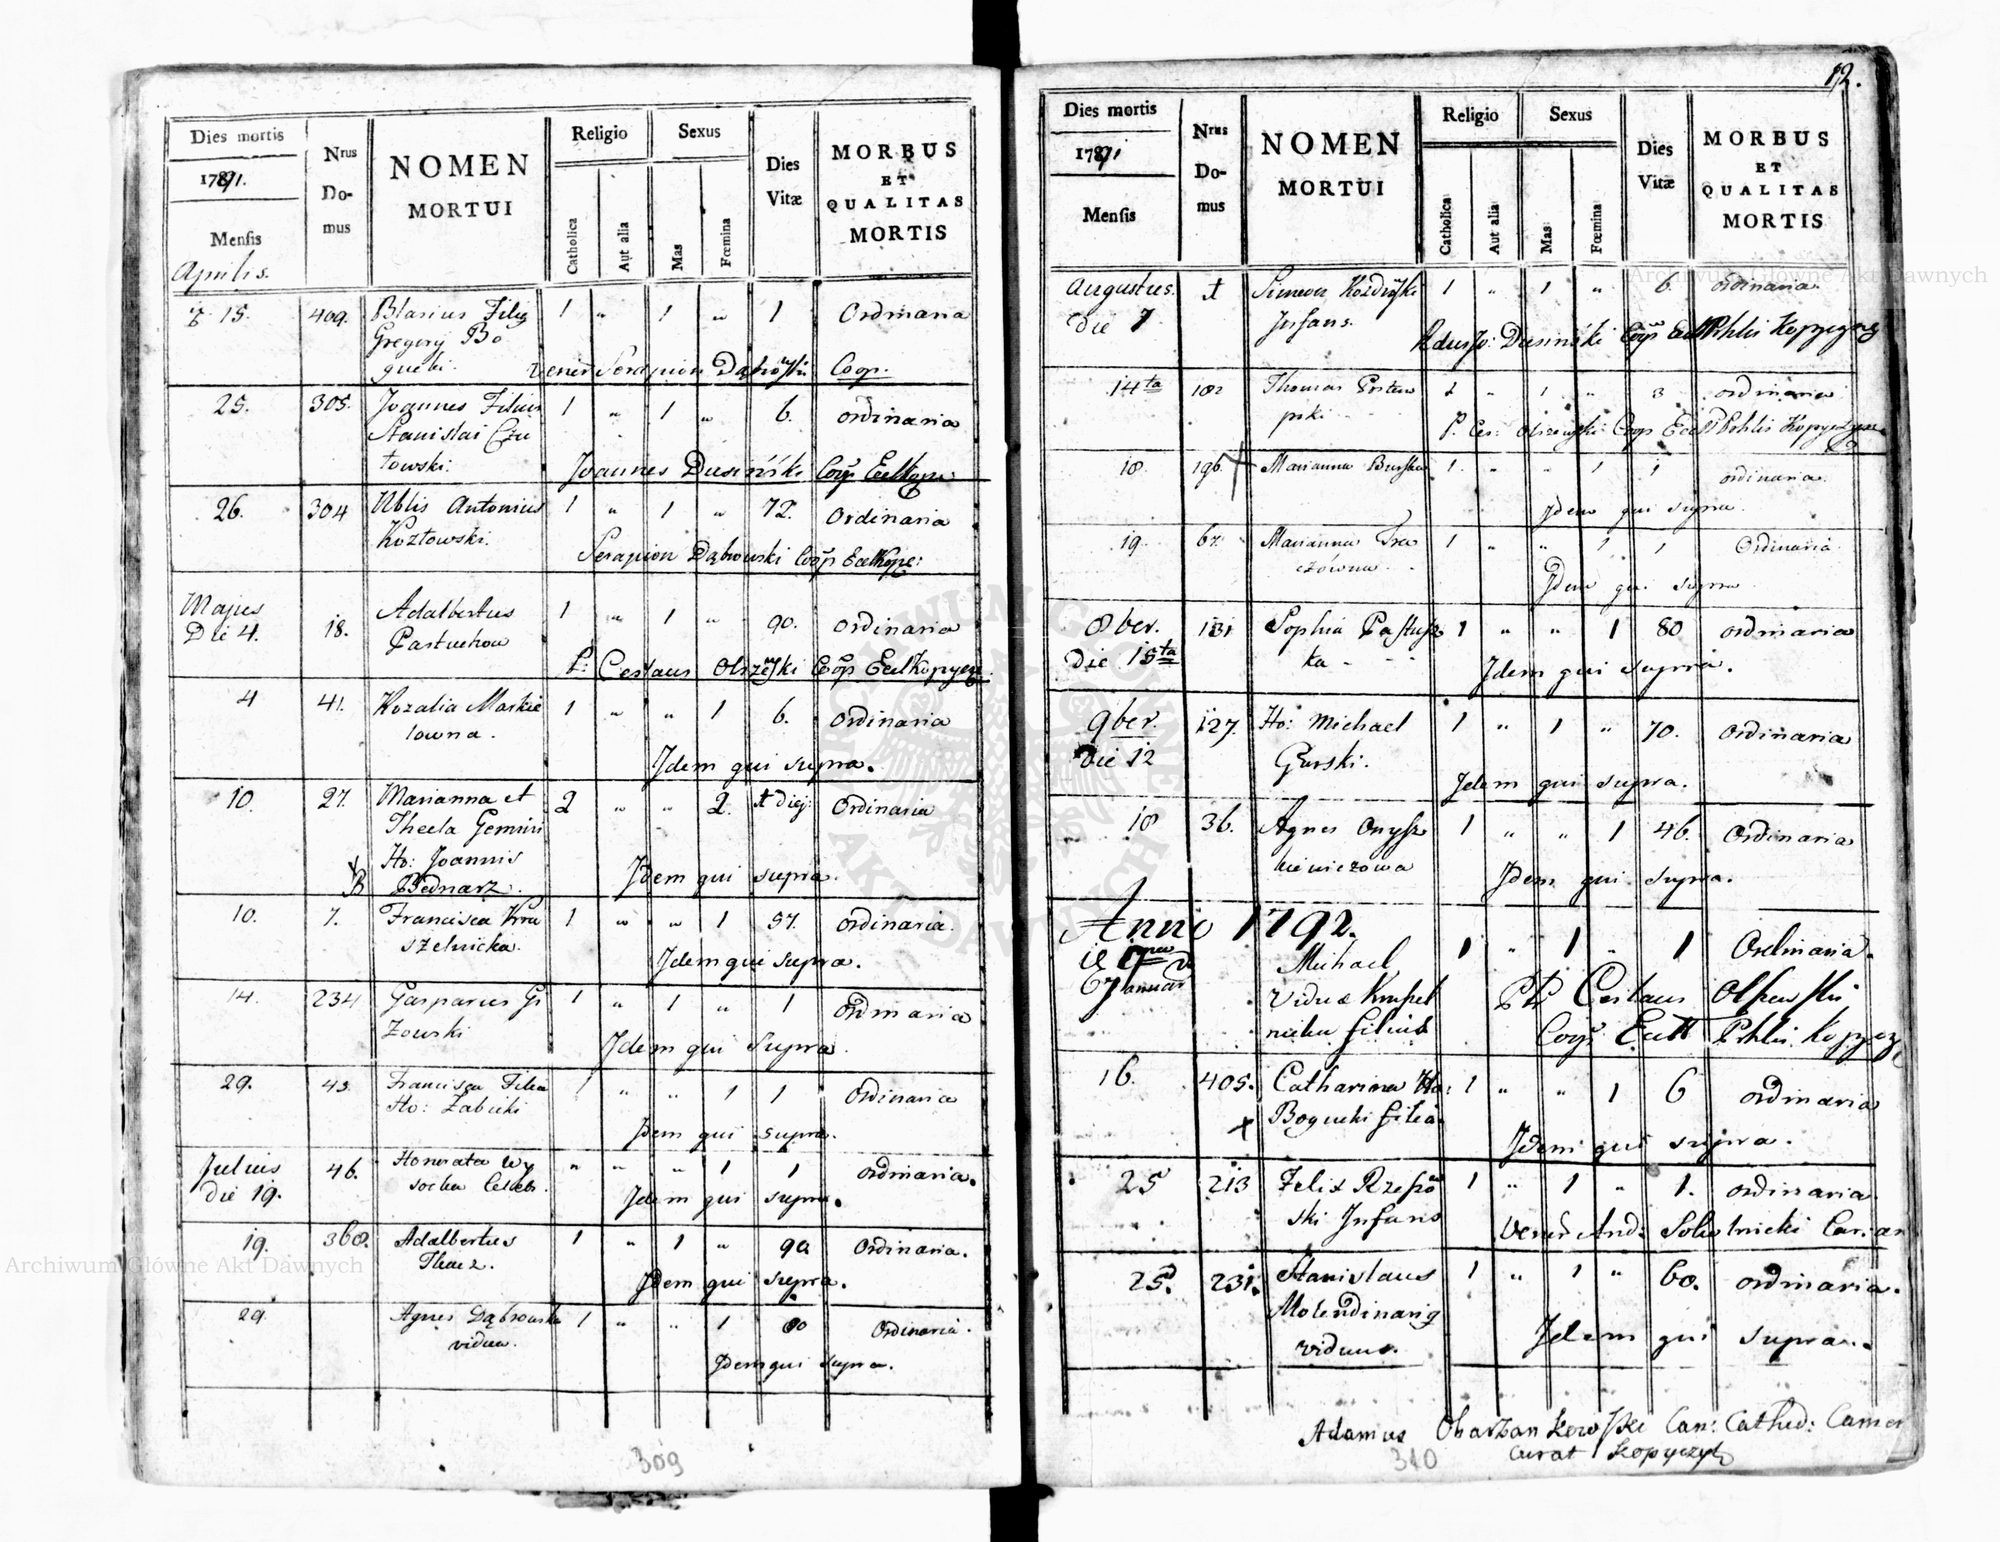 Dies mortis
1791.
Mensis
Aprilis.
Nrus
Do-
mus
NOMEN
MORTUI
Religio
Catholica
Aut alia
Sexus
Mas
Fœmina
Dies
Vitæ
MORBUS
ET
QUALITAS
MORTIS
15. 409. Blasius Filig 1 " 1 " 1 Ordinaria
Gregorij Bo
gucki. Venerˢ Serapion Dąbrowski Coop.
25. 305. Joannes Filius 1 " 1 " 6. ordinaria
Stanislai Czu
towski. Joannes Dusiński Coop Eccl Kopy
26. 304 Nblis Antonius 1 " 1 " 72. Ordinaria
Kozłowski.
Serapion Dąbrowski Coop Eccl Kopy:
Majus
Die 4. 18. Adalbertus 1 " 1 " 90. ordinaria
Pastuchow
P: Ceslaus Olszewski Coop Eccl Kopyez
4 41. Rozalia Markie 1 " " 1 6. ordinaria
lowna.
Idem qui supra.
10. 27. Marianna et 2 " " 2. t diej Ordinaria
Thecla Gemini
Ho: Joannis
B Bednarz. Idem qui supra.
10. 7. Francisca Kru 1 " " 1 57. ordinaria.
szelnicka.
Idem qui supra.
14. 234 Gasparus Gi 1 " 1 " 1 ordinaria
żowski
Idem qui Supra.
29. 43. Francisca Filia 1 " " 1 1 ordinaria
Ho: Zabicki
Idem qui supra.
Julius
die 19. 46. Honorata Wy " " " 1 1 ordinaria.
socka Celebr.
Idem qui supra.
19. 368. Adalbertus 1 " 1 " 90 Ordinaria.
Tkacz.
Idem qui supra.
29. Agnes Dąbrowska 1 " " 1 80 Ordinaria.
vidua.
Idem qui supra.
309
12.
Dies mortis
1791
Mensis
Nrus
Do-
mus
NOMEN
MORTUI
Religio
Catholica
Aut alia
Sexus
Mas
Fœmina
Dies
Vitæ
MORBUS
ET
QUALITAS
MORTIS
Augustus. t Simeon 1 " 1 " 6. ordinaria
Die 7 Infans.
Dusiński Coop Eccl Pchlis Kopyczyng
14ta 182 Thomas 1 " 1 " 3 ordinaria
pski
P. Ces: Olszewski Coop Eccl Pchlis Kopyczyn
18. 196. Marianna Burska 1. " " 1 1 ordinaria.
Idem qui supra.
19 67. Marianna Tra 1 " " 1 1 Ordinaria
czowna.
Idem qui supra
8ber. 131 Sophia Pastusz 1 " " 1 80 ordinaria
Die 15ta ka -
Idem qui supra.
9ber. 127. Ho: Michael 1 " 1 " 70. ordinaria
Die 12 Gurski.
Idem qui supra.
18 36. Agnes Onysz 1 " " 1 46. Ordinaria
kiewiczowa
Idem qui supra.
Anno 1792.
Michael 1 " 1 " 1 Ordinaria.
Januar
Viduæ
filius
Ceslaus Olszewski
Coop Eccl Pchlis Kopycz
16. 405. Catharina Ho: 1 " " 1 6 ordinaria
Bogucki filia.
Idem qui supra.
25 213 Felix Rzepo 1 " 1 " 1. ordinaria
ski Infans
Venerˢ And: Solotnicki
25. 231. Stanislaus 1 " 1 " 60. ordinaria.
Molendinarig
viduus.
Idem qui supra.
Adamus Obarzankowski Can: Cathed: Camen
Curat Kopyczyń
310
Archiwum Główne Akt Dawnych
Archiwum Główne Akt Dawnych
ARCHIWUM GŁÓWNE AKT DAWNYCH